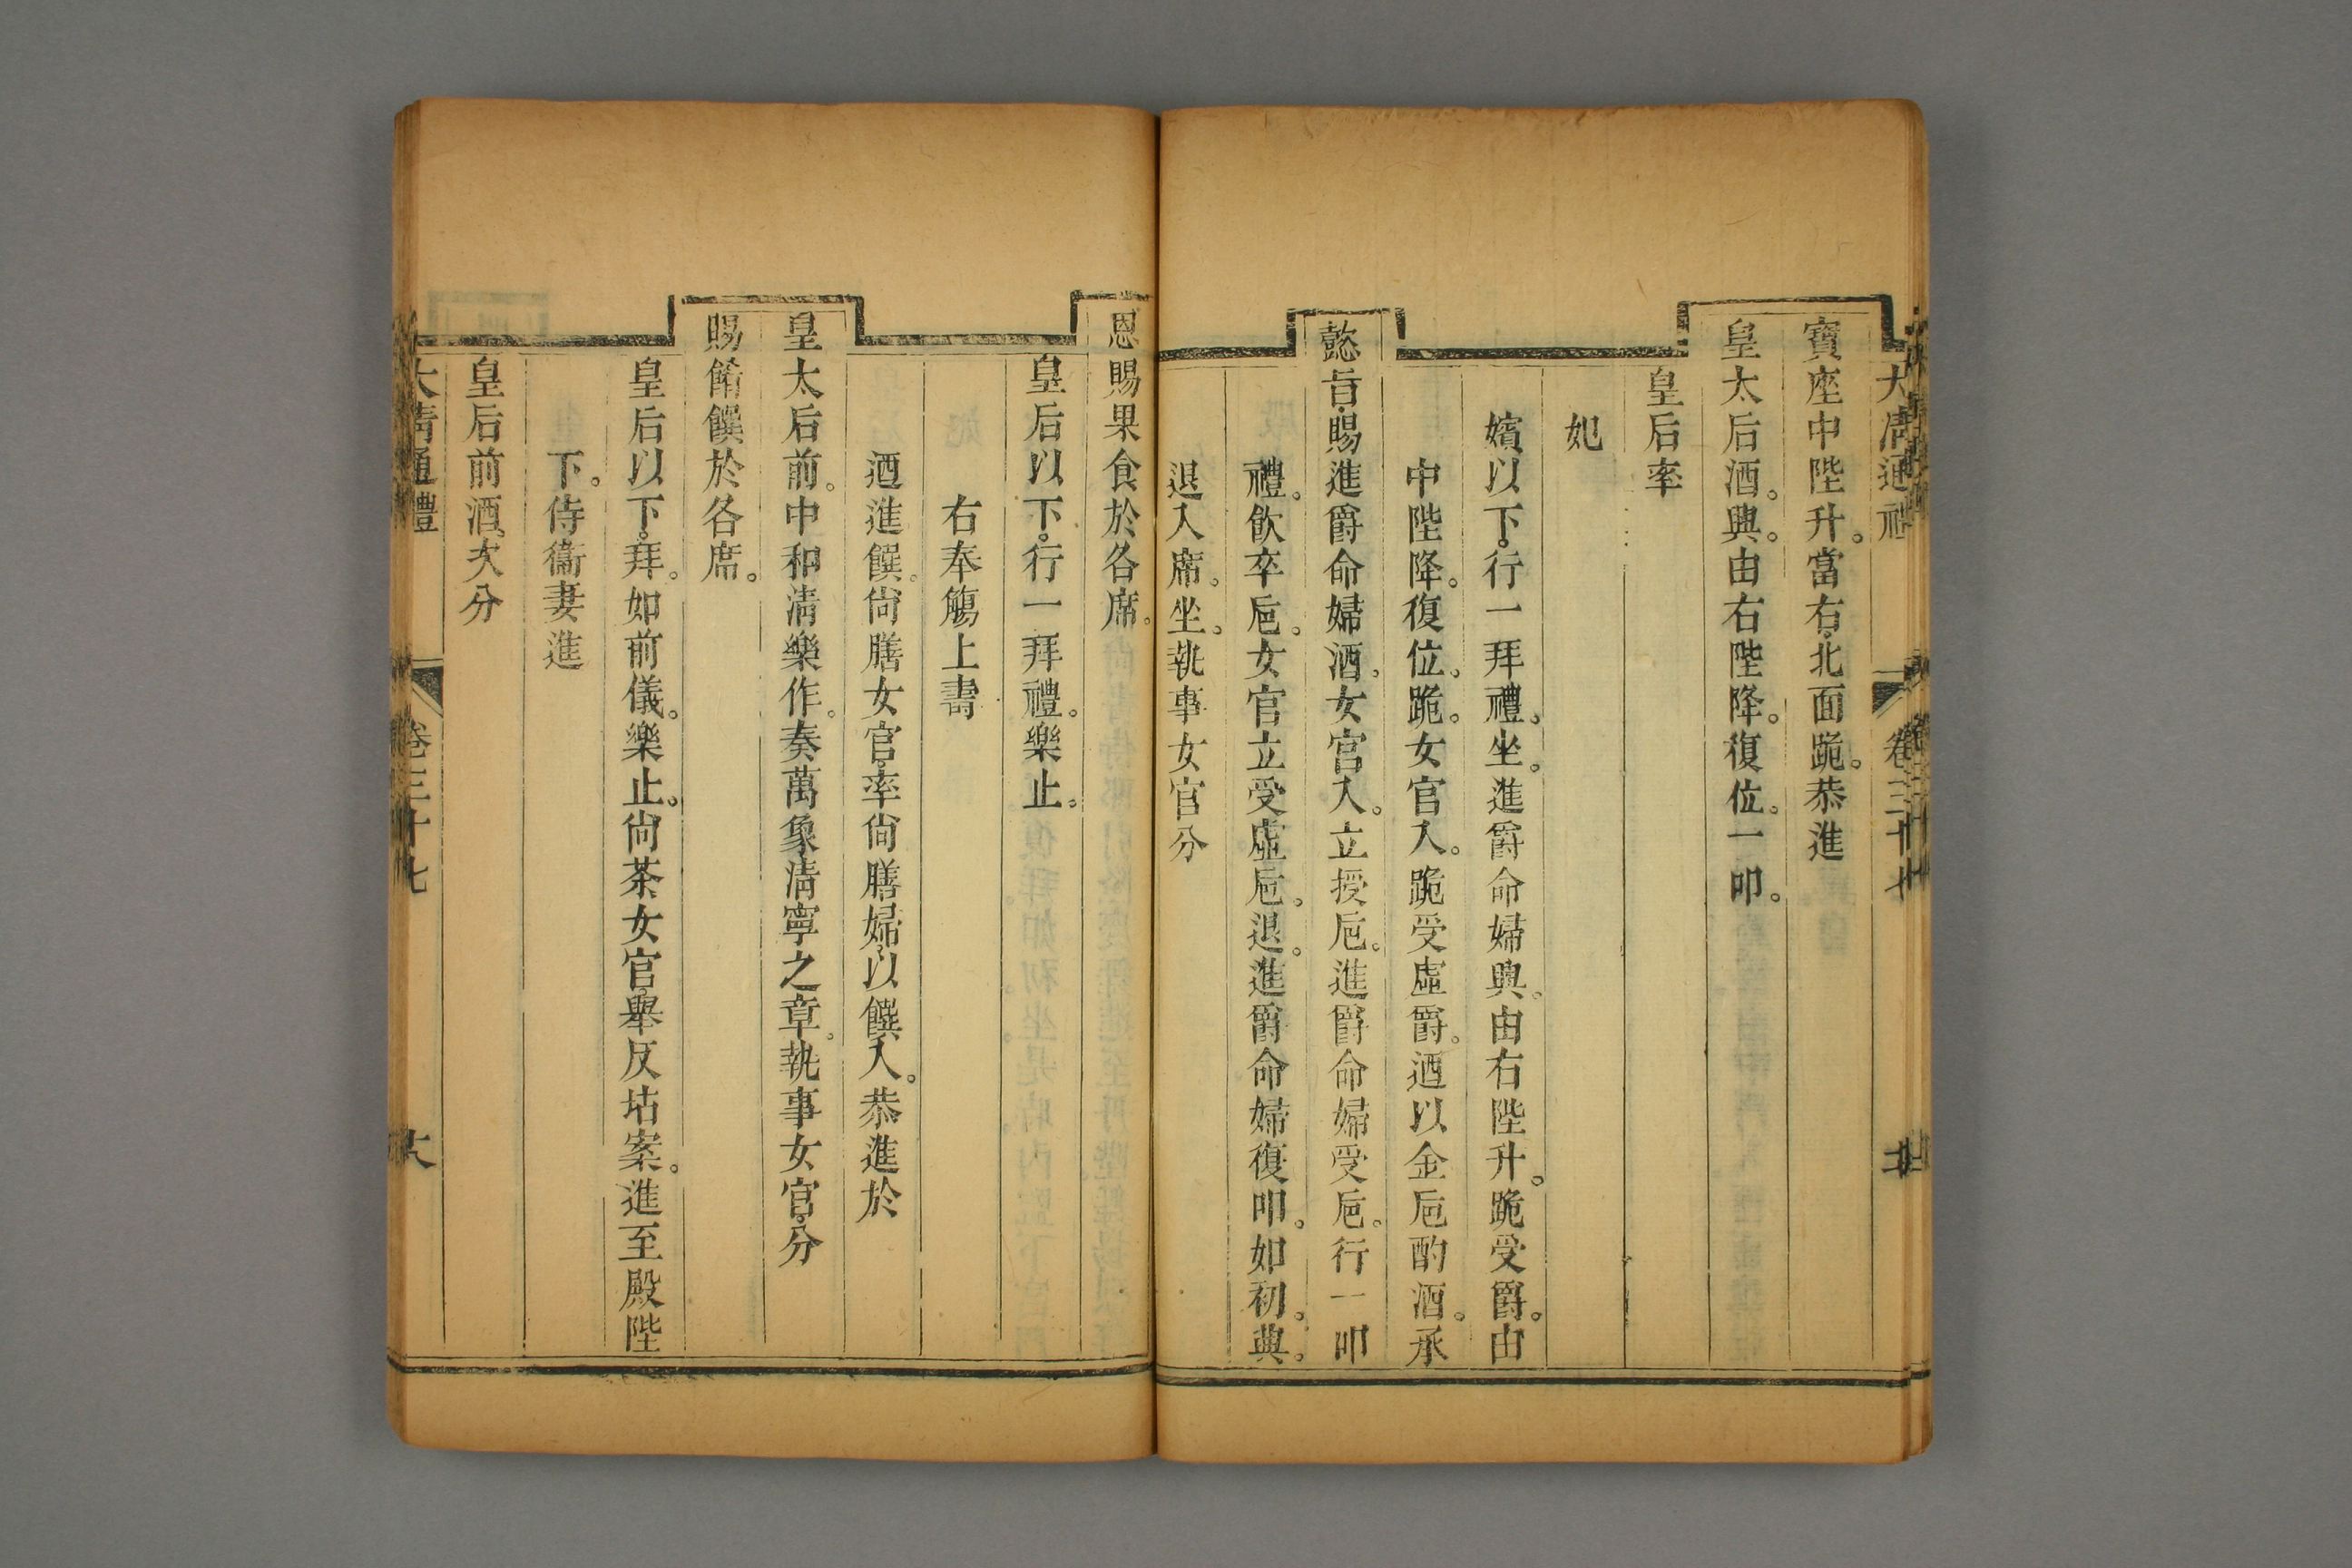 大清通禮 卷三十七
寶座中陛升。當右。北面跪。恭進
皇太后酒。興。由右陛降。復位。一叩。
皇后率
妃
嬪以下。行一拜禮。坐。進爵命婦興。由右陛升。跪受爵。由
中陛降。復位。跪。女官入。跪受虛爵。迺以金卮酌酒。承
懿旨。賜進爵命婦酒。女官入。立授卮。進爵命婦受卮。行一叩
禮。飲卒卮。女官立受虛卮。退。進爵命婦復叩。如初。興。
退入席。坐。執事女官分
恩賜果食於各席。
皇后以下。行一拜禮。樂止。
右奉觴上壽
迺進饌。尚膳女官。率尚膳婦。以饌入。恭進於
皇太后前。中和清樂作。奏萬象清寧之章。執事女官。分
賜餚饌於各席。
皇后以下。拜。如前儀。樂止。尚茶女官。舉反坫案。進至殿陛
下。侍衞妻進
皇后前酒。次分
大清通禮 卷三十七